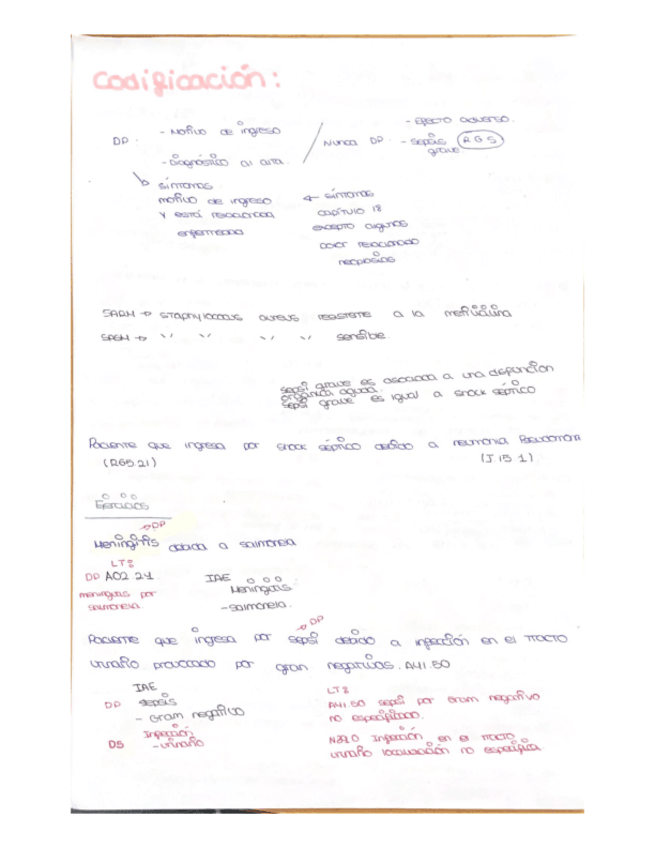 Codificación:
DP: - Motivo de ingreso / Nunca DP - Efecto adverso.
- Diagnóstico al alta. - sepsis grave (RGS)
↳ síntomas
motivo de ingreso
y está relacionada
enfermedad
← síntomas
capítulo 18
excepto algunos
dolor relacionado
neoplasias
SARM → staphylococcus aureus resistente a la meticilina
SASM → '' '' '' '' sensible.
sepsi grave es asociada a una disfunción
orgánica aguda.
sepsi grave es igual a shock séptico
Paciente que ingresa por shock séptico debido a neumonía Pseudomona
(R65.21) (J15.1)
Ejercicios
→DP
Meningitis debida a salmonela
LTE
DP A02.21 IAE
meningitis por salmonela
Meningitis
- salmonela.
→DP
Paciente que ingresa por sepsi debido a infección en el tracto
urinario provocado por gran negativos. A41.50
IAE
DP sepsis
- Gram negativo
DS Infección
- urinario
LTE
A41.50 sepsi por Gram negativo
no especificado.
N39.0 Infección en el tracto
urinario localización no especifica.